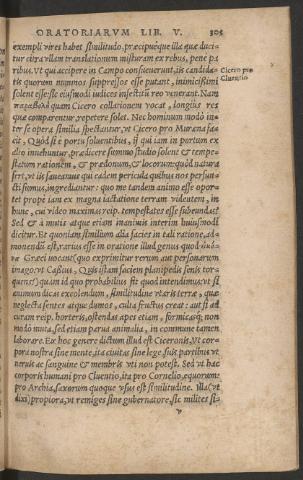 ORATORIARVM LIB. V. 305
exempli vires habet similitudo, præcipuéque illa quæ duci-
tur citra vllam translationum misturam ex rebus, pene pa
ribus. Vt qui accipere in Campo consueuerunt, iis candida-
tis quorum nummos suppressos esse putant, inimicissimi
solent esse: sic eiusmodi iudices infesti tum reo venerant. Nam
παραβολὴ quam Cicero collationem vocat, longius res
quæ comparentur, repetere solet. Nec hominum modò in-
ter se opera similia spectantur, vt Cicero pro Murœna fa-
cit, Quòd si è portu soluentibus, ij qui iam in portum ex
alto inuehuntur, prædicere summo studio solent & tempe-
statum rationem, & prædonum, & locorum: quòd natura
fert, vt iis faueamus qui eadem pericula quibus nos perfun-
cti sumus, ingrediantur: quo me tandem animo esse opor-
tet prope iam ex magna iactatione terram videntem, in
hunc, cui video maximas reip. tempestates esse subeundas?
Sed & à mutis atque etiam inanimis interim huiusmodi
dicitur. Et quoniam similium alia facies in tali ratione, ad-
monendũ est, rarius esse in oratione illud genus quod
Græci vocant (quo exprimitur rerum aut personarum
imago, vt Cassius, Quis istam faciem planipedis senis tor-
quens?) quàm id quo probabilius fit quod intendimus: vt si
animum dicas excolendum, similitudine vtaris terræ, quæ
neglecta sentes atque dumos, culta fructus creat: aut si ad
curam reip. horteris, ostendas apes etiam, formicasq́; non
modò muta, sed etiam parua animalia, in commune tamen
laborare. Ex hoc genere dictum illud est Ciceronis, Vt cor-
pora nostra sine mente, ita ciuitas sine lege, suis partibus vt
neruis ac sanguine & membris vti non potest. Sed vt hac
corporis humani pro Cluentio, ita pro Cornelio, equorum:
pro Archia, saxorum quoque vsus est similitudine. Illa (vt
dixi) propiora, vt remiges sine gubernatore, sic milites si-
v
Cicero pro
Cluentio